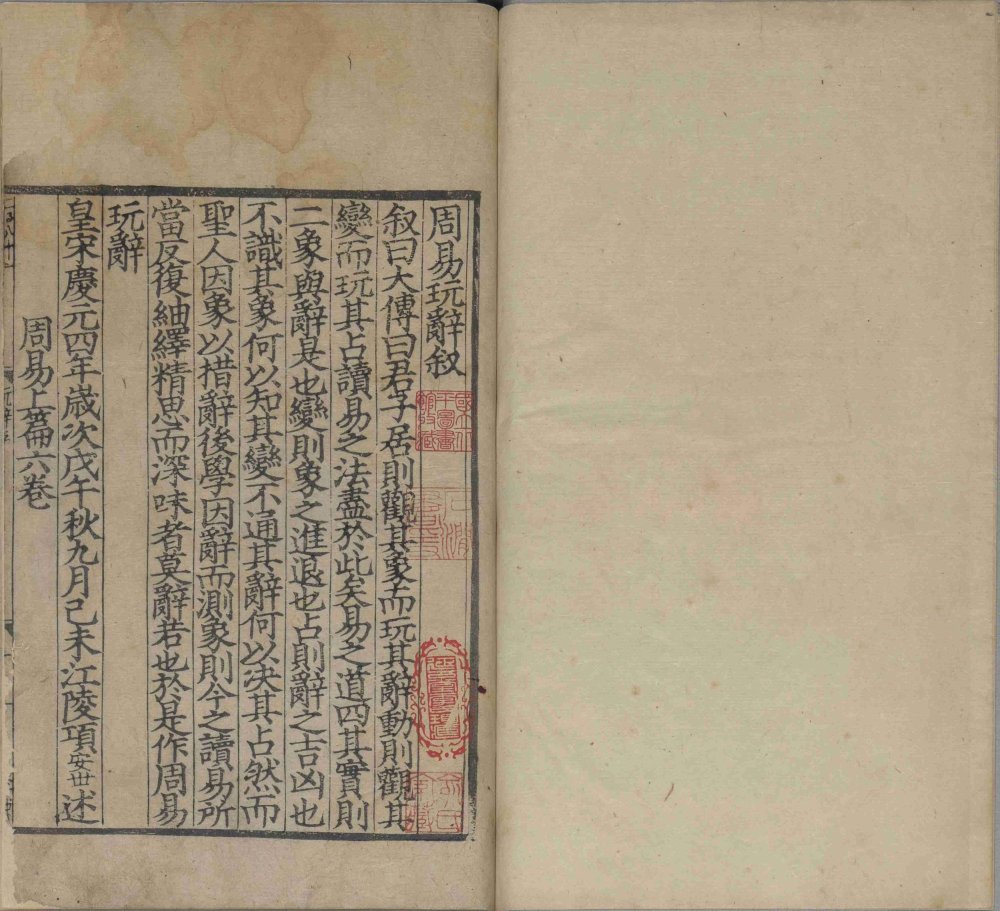 周易玩辭叙
叙曰大傳曰君子居則觀其象而玩其辭動則觀其
變而玩其占讀易之法盡於此矣易之道四其實則
二象與辭是也變則象之進退也占則辭之吉凶也
不識其象何以知其變不通其辭何以決其占然而
聖人因象以措辭後學因辭而測象則今之讀易所
當反復紬繹精思而深味者莫辭若也於是作周易
玩辭
皇宋慶元四年歲次戊午秋九月己未江陵項安世述
周易上篇六卷